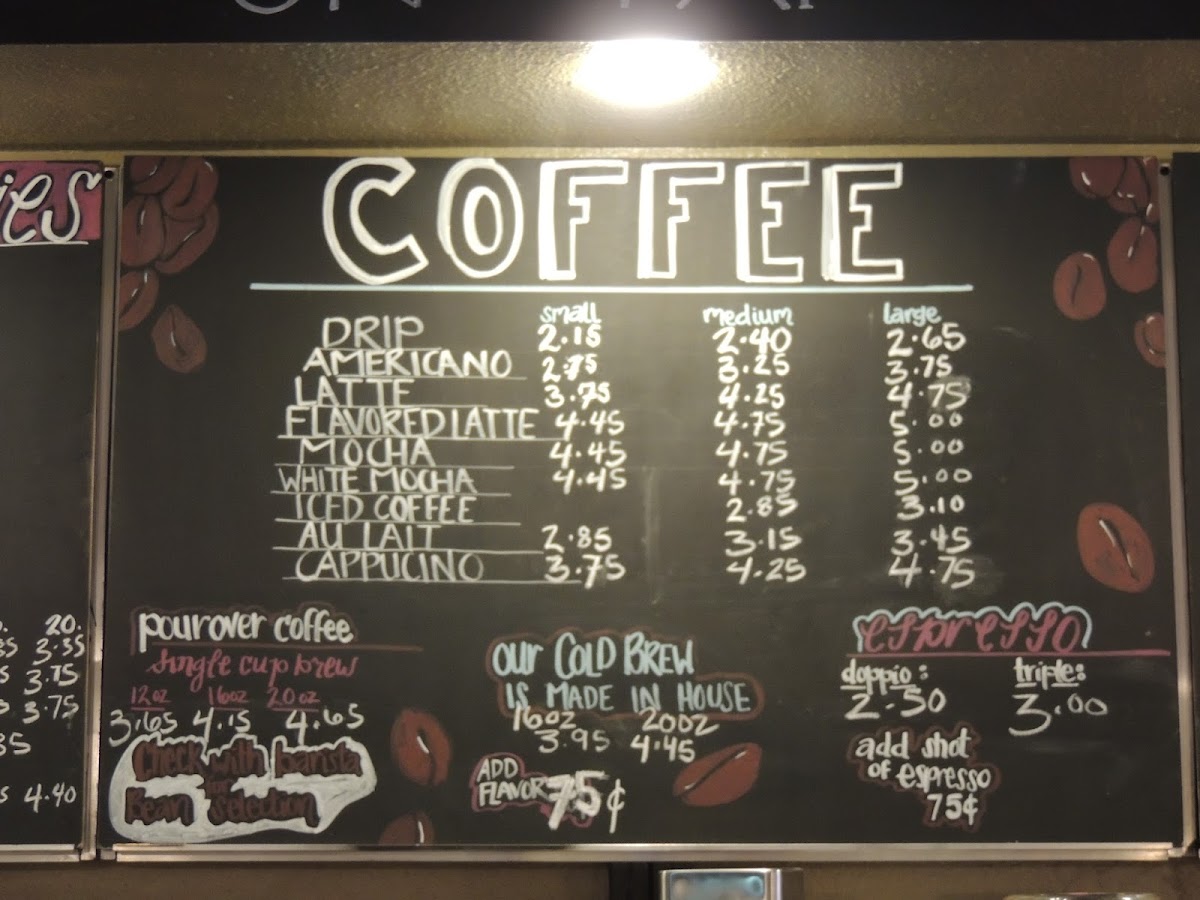 ies
COFFEE
small medium large
DRIP 2.15 2.40 2.65
AMERICANO 2.75 3.25 3.75
LATTE 3.75 4.25 4.75
FLAVORED LATTE 4.45 4.75 5.00
MOCHA 4.45 4.75 5.00
WHITE MOCHA 4.45 4.75 5.00
ICED COFFEE 2.85 3.10
AU LAIT 2.85 3.15 3.45
CAPPUCINO 3.75 4.25 4.75
20.
3.35
3.75
3.75
4.40
pourover coffee
single cup brew
12oz 16oz 20oz
3.65 4.15 4.65
Check with barista
for
Bean selection
our COLD BREW
IS MADE IN HOUSE
16oz 20oz
3.95 4.45
ADD
FLAVOR 75¢
espresso
doppio: triple:
2.50 3.00
add shot
of espresso
75¢